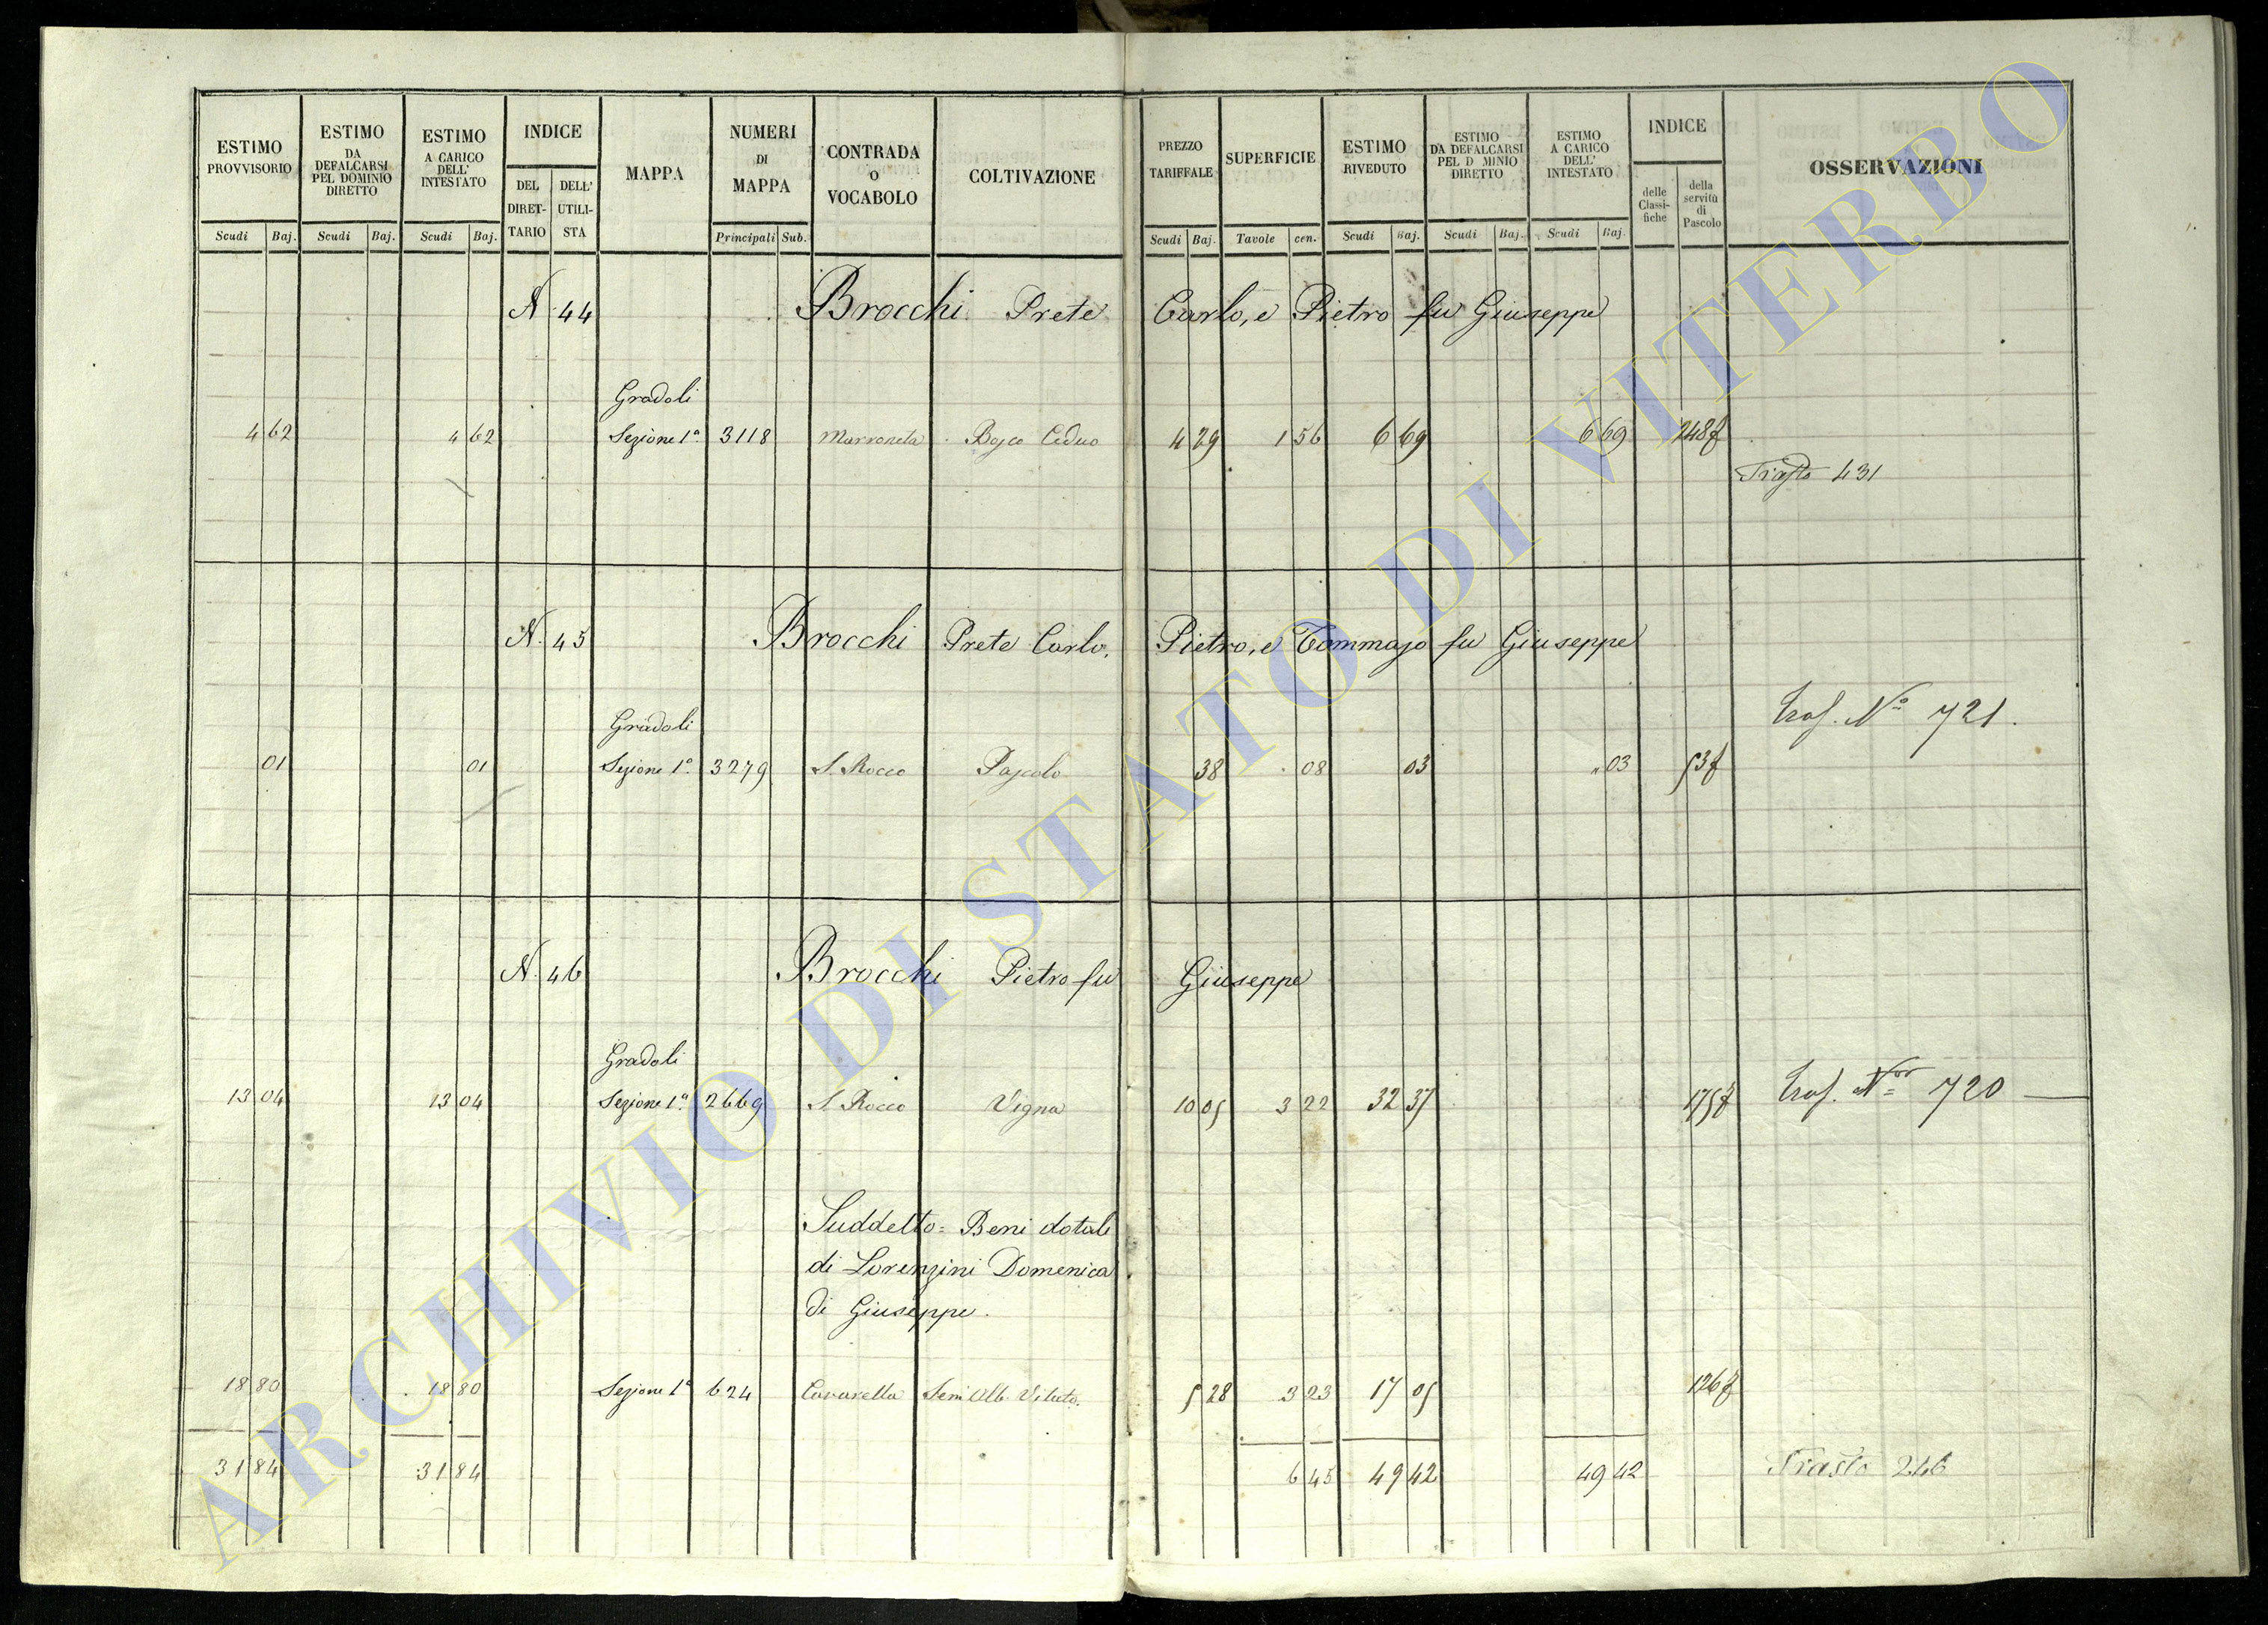 ESTIMO PROVVISORIO
ESTIMO DA DEFALCARSI PEL DOMINIO DIRETTO
ESTIMO A CARICO DELL' INTESTATO
INDICE
DEL DIRET- TARIO
DELL' UTILI- STA
MAPPA
NUMERI DI MAPPA
CONTRADA O VOCABOLO
COLTIVAZIONE
PREZZO TARIFFALE
SUPERFICIE
ESTIMO RIVEDUTO
ESTIMO DA DEFALCARSI PEL D MINIO DIRETTO
ESTIMO A CARICO DELL' INTESTATO
INDICE
delle Classi- fiche
della servitù di Pascolo
OSSERVAZIONI
Scudi Baj. Scudi Baj. Scudi Baj. Principali Sub. Scudi Baj. Tavole cen. Scudi Baj. Scudi Baj. Scudi Baj.
N. 44 Brocchi Prete Carlo, e Pietro fu Giuseppe
Gradoli
4 62 4 62 Sezione 1ª 3118 Marroneta Bosco Ceduo 4 29 1 56 6 69 6 69 248
Trasto 431
N. 45 Brocchi Prete Carlo, Pietro, e Tommaso fu Giuseppe
Gradoli
Traf. Nº 721.
01 01 Sezione 1ª 3279 S. Rocco Pascolo 38 08 03 " 03 53
N. 46 Brocchi Pietro fu Giuseppe
Gradoli
13 04 13 04 Sezione 1ª 2669 S. Rocco Vigna 10 05 3 22 32 37 175 Traf. 720
Suddetto = Beni dotali
di Lorenzini Domenica
di Giuseppe.
18 80 18 80 Sezione 1ª 624 Cavarella Sem Alb Vitato. 5 28 3 23 17 05 126
31 84 31 84 6 45 49 42 49 42 Trasto 246
ARCHIVIO DI STATO DI VITERBO